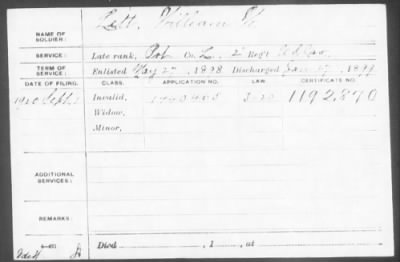 NAME OF SOLDIER: Litt, William
SERVICE: Late rank, Co. L, 2 Regt
TERM OF SERVICE: Enlisted May 27, 1898 Discharged Jan 17, 1899
DATE OF FILING. CLASS. APPLICATION NO. LAW. CERTIFICATE NO.
1920 Sept. 2 Invalid, 1192,870
Widow,
Minor,
ADDITIONAL SERVICES:
REMARKS:
Died , 1 , at